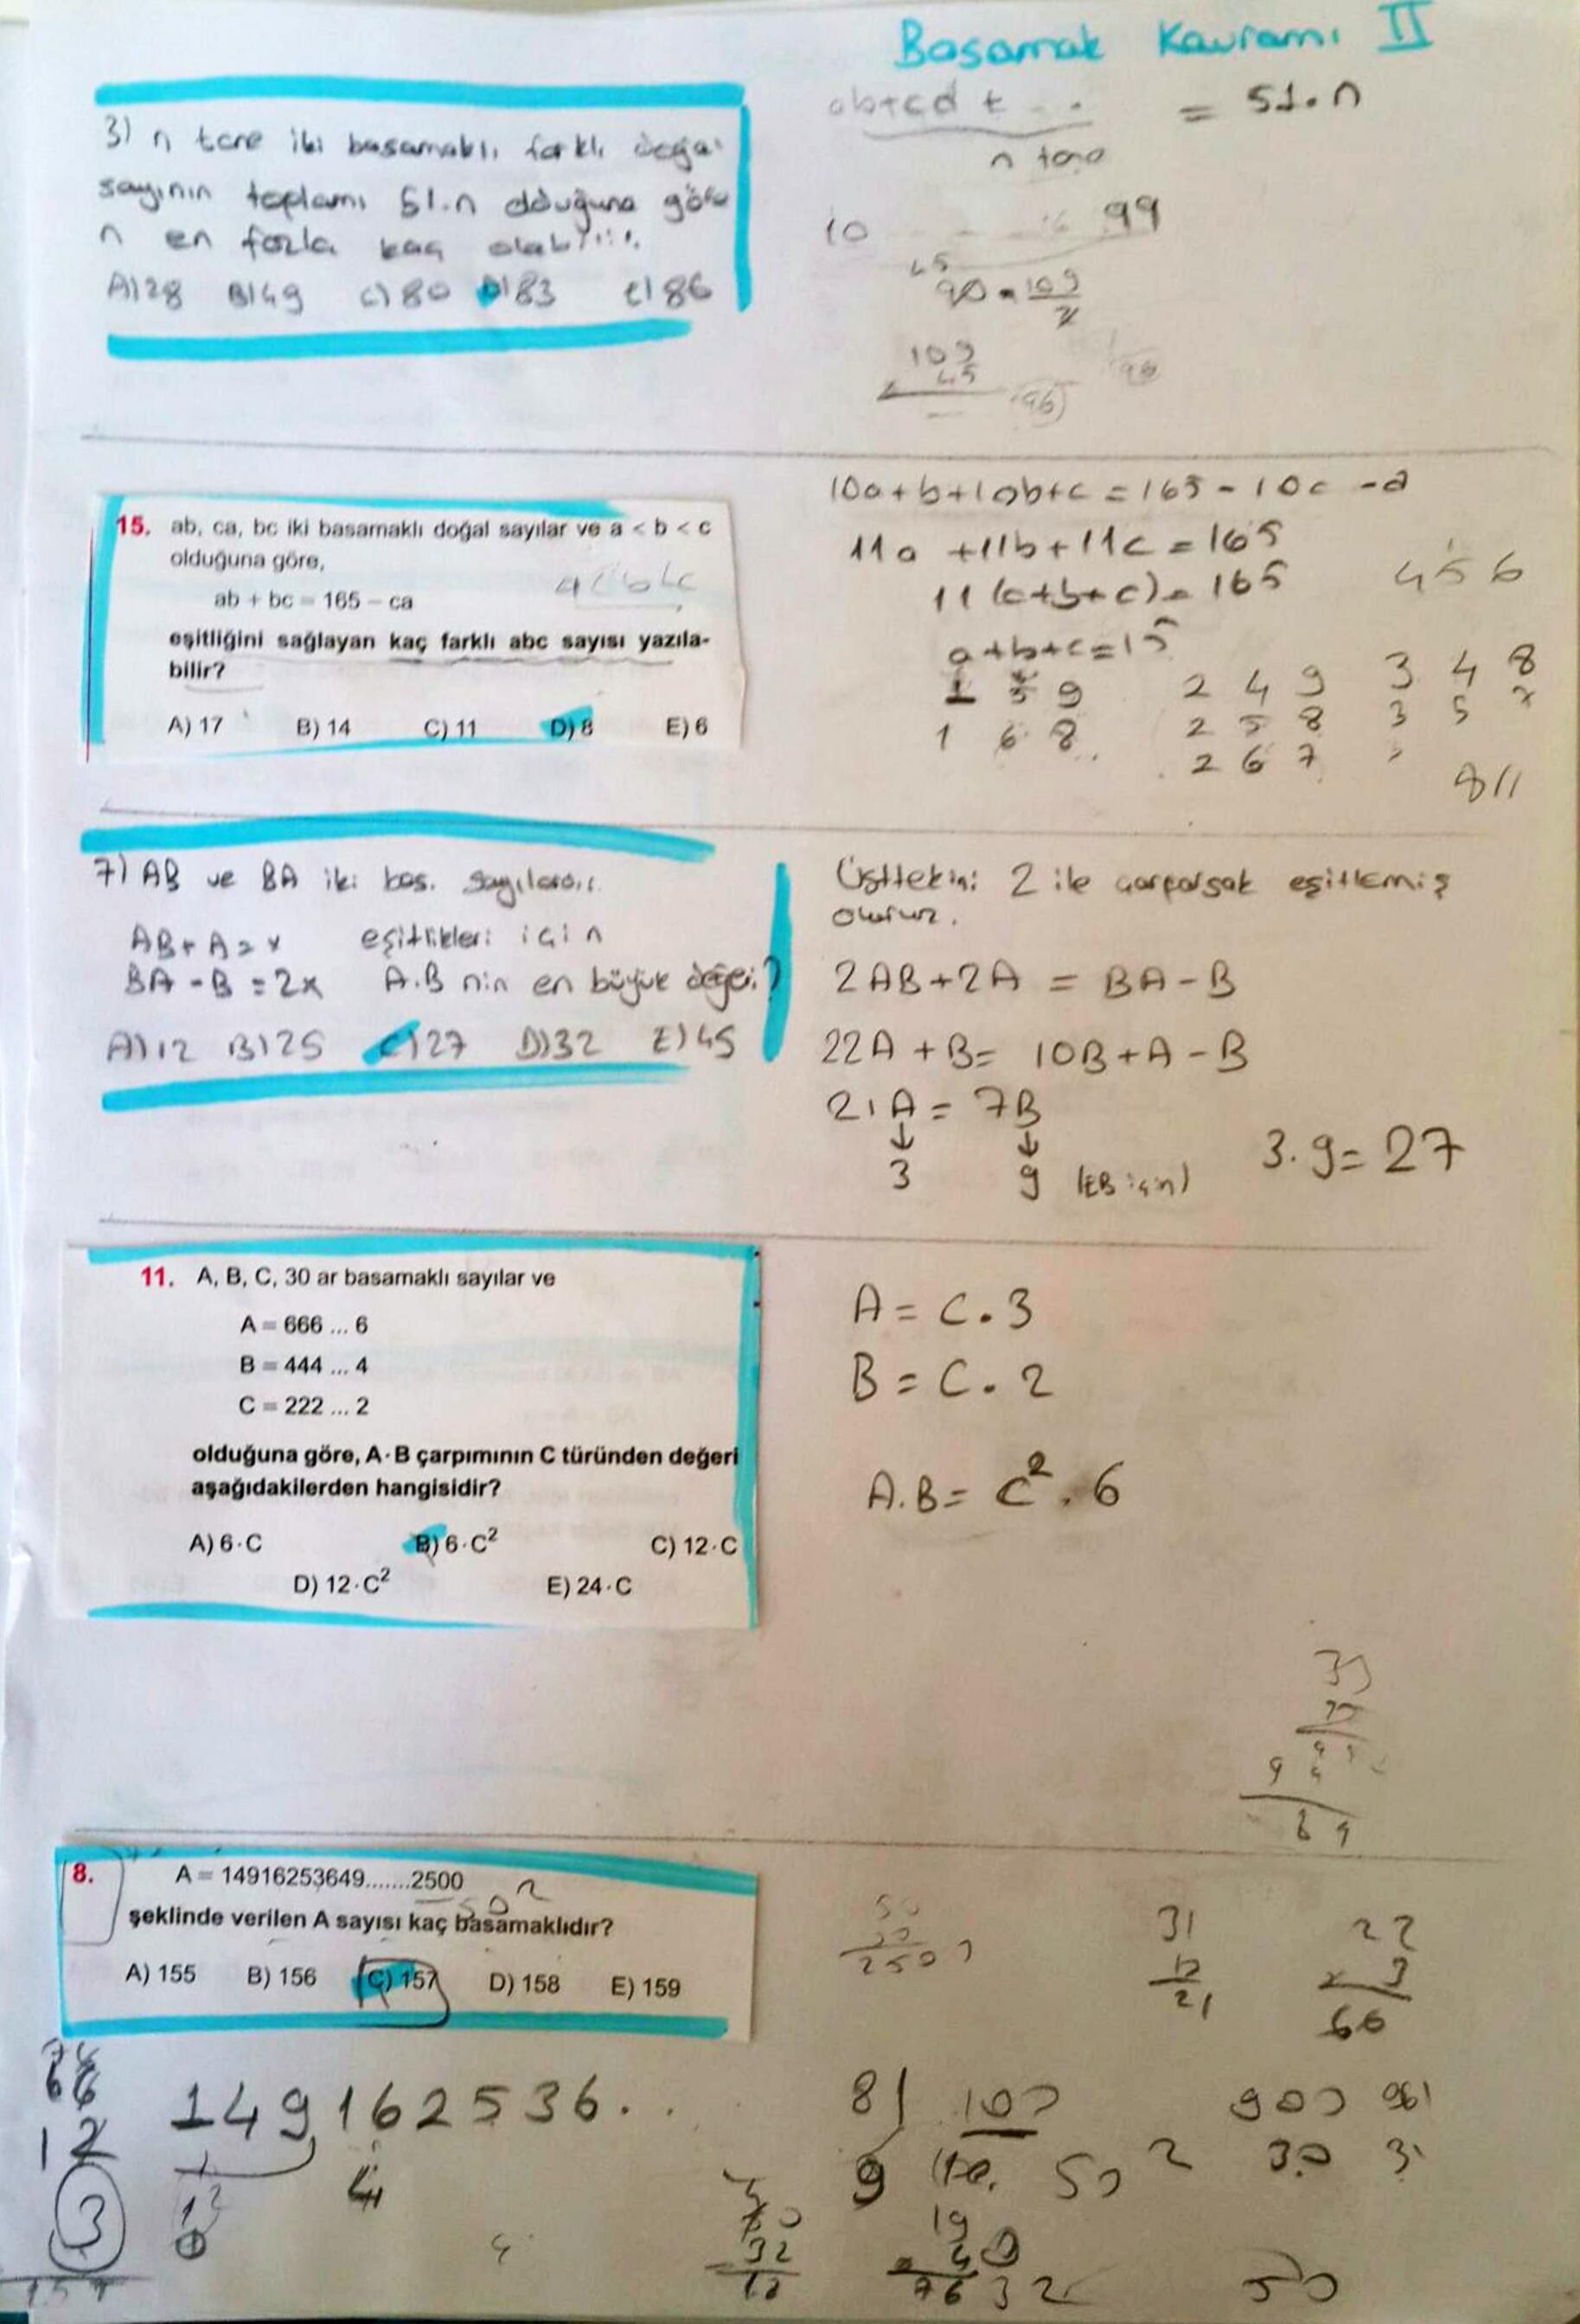 Basamak Kavramı II
3) n tane iki basamaklı farklı doğal
sayının toplamı 51.n olduğuna göre
n en fazla kaç olabilir.
A) 28 B) 49 C) 80 D) 83 E) 86
ab+cd + . . = 51.n
n tane
10 99
45
90 . 109
2
109
45
15. ab, ca, bc iki basamaklı doğal sayılar ve a < b < c
olduğuna göre,
ab + bc = 165 – ca
eşitliğini sağlayan kaç farklı abc sayısı yazıla-
bilir?
A) 17 B) 14 C) 11 D) 8 E) 6
10a+b+10b+c = 165 - 10c - a
11a + 11b + 11c = 165
11 (a+b+c) = 165
a+b+c = 15
4 5 6
1 5 9 2 4 9 3 4 8
1 6 8 2 5 8 3 5 7
2 6 7
7) AB ve BA iki bas. sayılardır.
AB + A = x eşitlikleri için
BA - B = 2x A.B nin en büyük değeri?
A) 12 B) 25 C) 27 D) 32 E) 45
Üsttekini 2 ile çarparsak eşitlemiş
oluruz.
2AB + 2A = BA - B
22A + B = 10B + A - B
21A = 7B
3 9 (EB için) 3.9 = 27
11. A, B, C, 30 ar basamaklı sayılar ve
A = 666 ... 6
B = 444 ... 4
C = 222 ... 2
olduğuna göre, A·B çarpımının C türünden değeri
aşağıdakilerden hangisidir?
A) 6·C B) 6·C² C) 12·C
D) 12·C² E) 24·C
A = C . 3
B = C . 2
A.B = C² . 6
8. A = 14916253649.......2500
50²
şeklinde verilen A sayısı kaç basamaklıdır?
A) 155 B) 156 C) 157 D) 158 E) 159
2500
31
21
22
x 3
66
149162536...
12
3
157
81 100 900 961
9 10. 50² 30 31
19
4
76 32 50